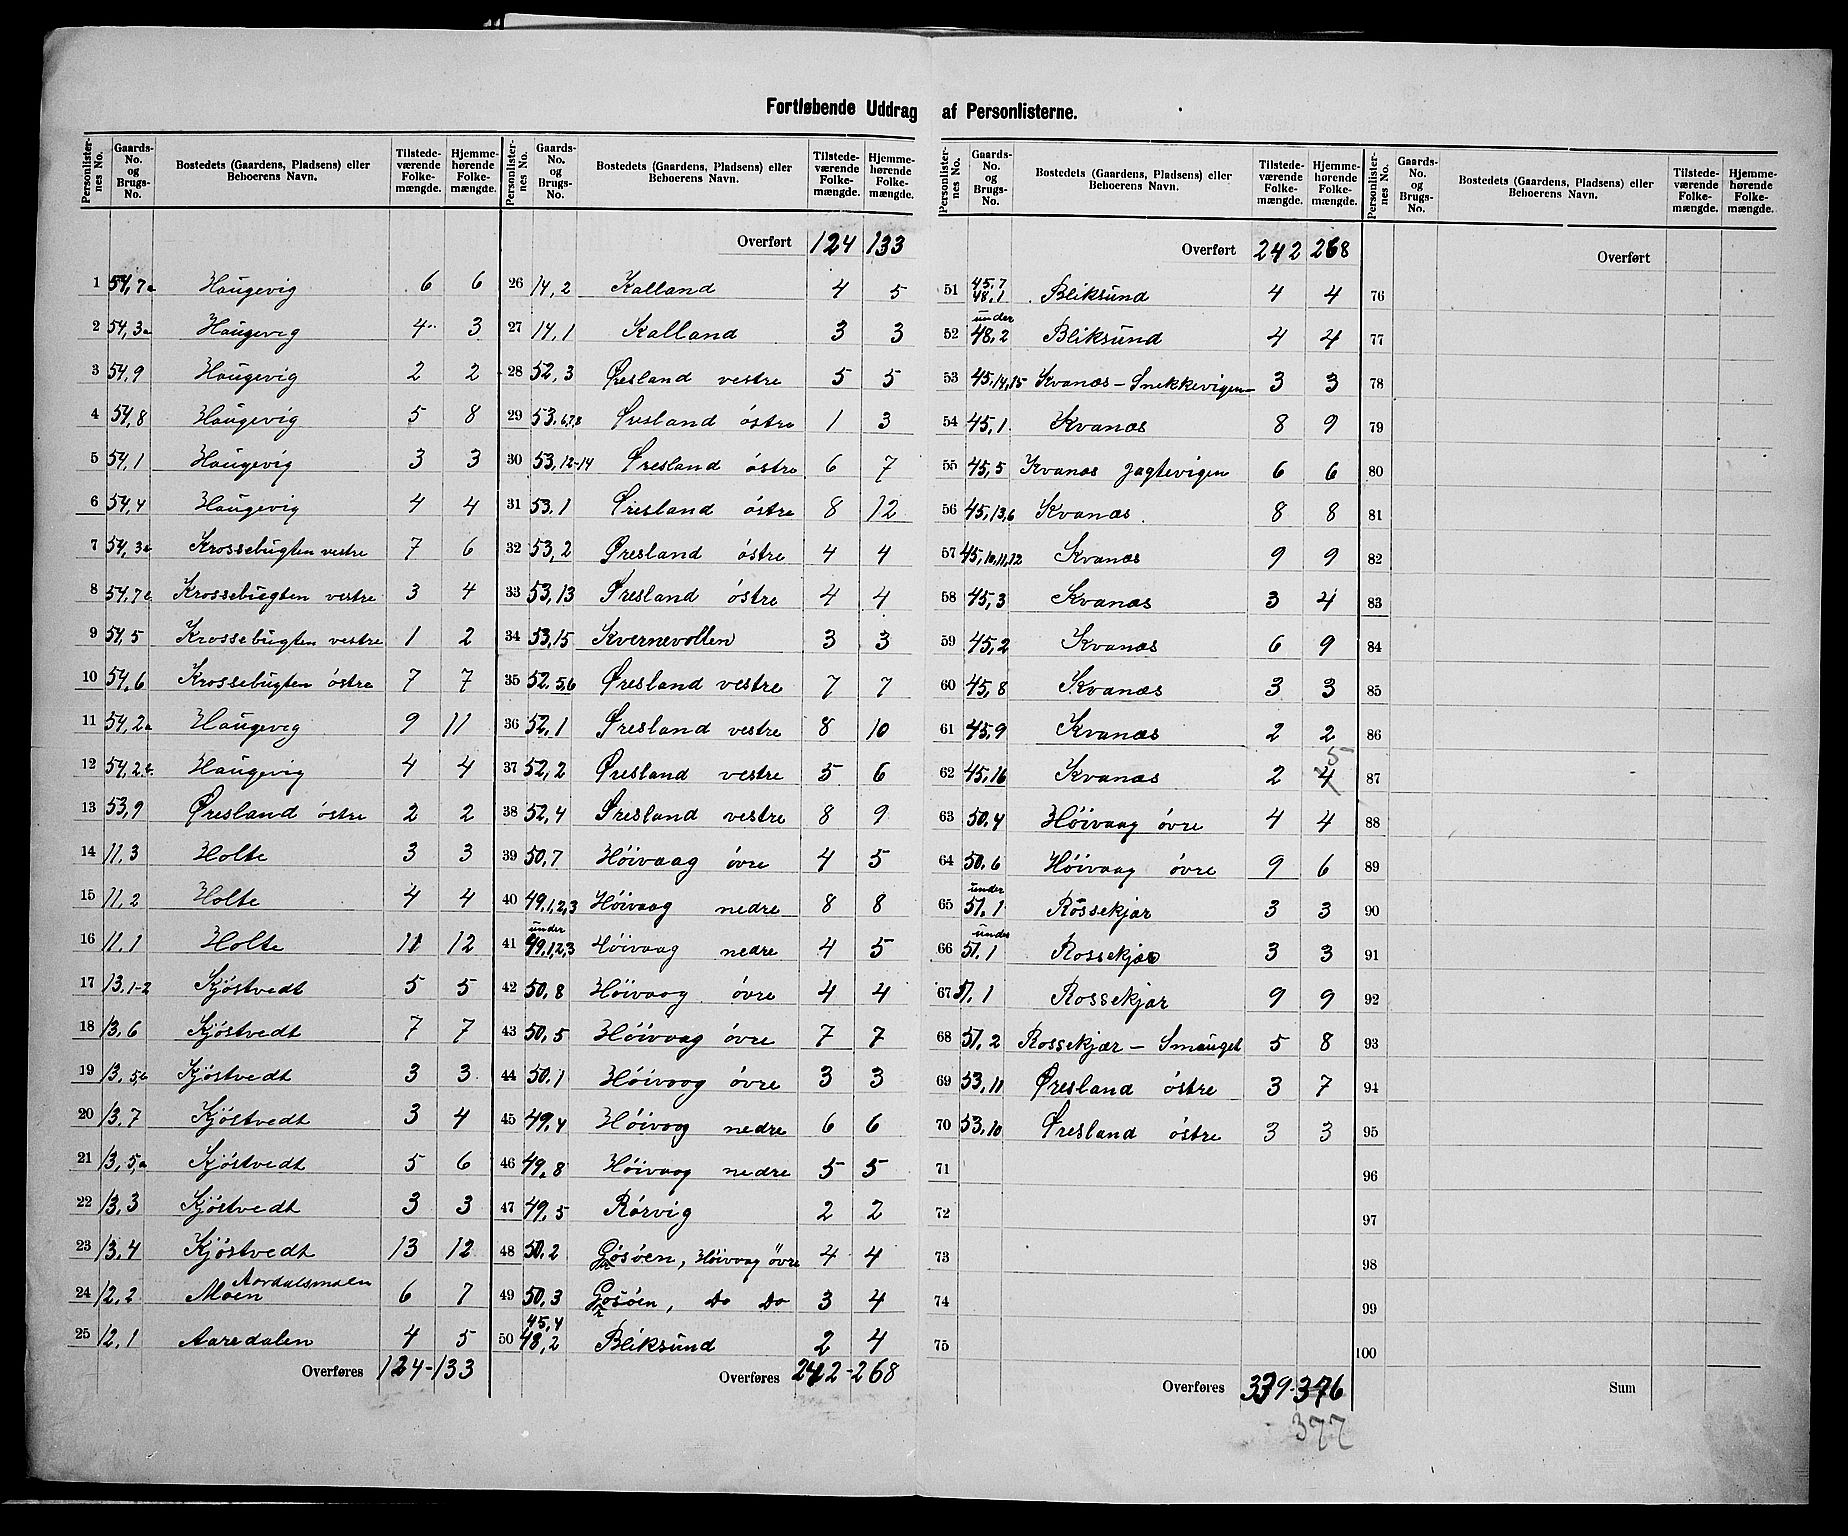 Fortløbende Uddrag af Personlisternes.
Personlister-nes No. | Gaards-No. og Brugs-No. | Bostedets (Gaardens, Pladsens) eller Beboerens Navn. | Tilstede-værende Folke-mængde. | Hjemme-hørende Folke-mængde.
1 54,7a Haugevig 6 6
2 54,3a Haugevig 4 3
3 54,9 Haugevig 2 2
4 54,8 Haugevig 5 8
5 54,1 Haugevig 3 3
6 54,4 Haugevig 4 4
7 54,3 Krossebugten vestre 7 6
8 54,7 Krossebugten vestre 3 4
9 54,5 Krossebugten vestre 1 2
10 54,6 Krossebugten östre 7 7
11 54,2a Haugevig 9 11
12 54,2 Haugevig 4 4
13 53,9 Øresland östre 2 2
14 11,3 Holte 3 3
15 11,2 Holte 4 4
16 11,1 Holte 11 12
17 13,1-2 Kjöstvedt 5 5
18 13,6 Kjöstvedt 7 7
19 13,5,b Kjöstvedt 3 3
20 13,7 Kjöstvedt 3 4
21 13,5,a Kjöstvedt 5 6
22 13,3 Kjöstvedt 3 3
23 13,4 Kjöstvedt 13 12
24 12,2 Aardalsmoen Moen 6 7
25 12,1 Aaredalen 4 5
Overføres 124-133
Personlister-nes No. | Gaards-No. og Brugs-No. | Bostedets (Gaardens, Pladsens) eller Beboerens Navn. | Tilstede-værende Folke-mængde. | Hjemme-hørende Folke-mængde.
Overført 124 133
26 14,2 Kalland 4 5
27 14,1 Kalland 3 3
28 52,3 Øresland vestre 5 5
29 53,6,7,8 Øresland östre 1 3
30 53,12-14 Øresland östre 6 7
31 53,1 Øresland östre 8 12
32 53,2 Øresland östre 4 4
33 53,13 Øresland östre 4 4
34 53,15 Kvernevolten 3 3
35 52,5,6 Øresland vestre 7 7
36 52,1 Øresland vestre 8 10
37 52,2 Øresland vestre 5 6
38 52,4 Øresland vestre 8 9
39 50,7 Höivaag övre 4 5
40 49,1,2,3 Höivaag nedre 8 8
41 under 49,1,2,3 Höivaag nedre 4 5
42 50,8 Höivaag övre 4 4
43 50,5 Höivaag övre 7 7
44 50,1 Höivaag övre 3 3
45 49,4 Höivaag nedre 6 6
46 49,8 Höivaag nedre 5 5
47 49,5 Rörvig 2 2
48 50,2 Gösöen, Höivaag övre 4 4
49 50,3 Gösöen, Do Do 3 4
50 45,4 48,2 Bliksund 2 4
Overføres 242-268
Personlister-nes No. | Gaards-No. og Brugs-No. | Bostedets (Gaardens, Pladsens) eller Beboerens Navn. | Tilstede-værende Folke-mængde. | Hjemme-hørende Folke-mængde.
Overført 242 268
51 45,7 48,1 Bliksund 4 4
52 under 48,2 Bliksund 4 4
53 45,14,15 Kvanæs-Snekkevigen 3 3
54 45,1 Kvanæs 8 9
55 45,5 Kvanæs Jagtevigen 6 6
56 45,13,6 Kvanæs 8 8
57 45,10,11,12 Kvanæs 9 9
58 45,3 Kvanæs 3 4
59 45,2 Kvanæs 6 9
60 45,8 Kvanæs 3 3
61 45,9 Kvanæs 2 2
62 45,16 Kvanæs 2 4 5
63 50,4 Höivaag övre 4 4
64 50,6 Höivaag övre 9 6
65 under 51,1 Rossekjær 3 3
66 under 51,1 Rossekjær 3 3
67 51,1 Rossekjær 9 9
68 51,2 Rossekjær - Smauget 5 8
69 53,11 Øresland östre 3 7
70 53,10 Øresland östre 3 3
71
72
73
74
75
Overføres 339-376
377
Personlister-nes No. | Gaards-No. og Brugs-No. | Bostedets (Gaardens, Pladsens) eller Beboerens Navn. | Tilstede-værende Folke-mængde. | Hjemme-hørende Folke-mængde.
Overført
76
77
78
79
80
81
82
83
84
85
86
87
88
89
90
91
92
93
94
95
96
97
98
99
100
Sum